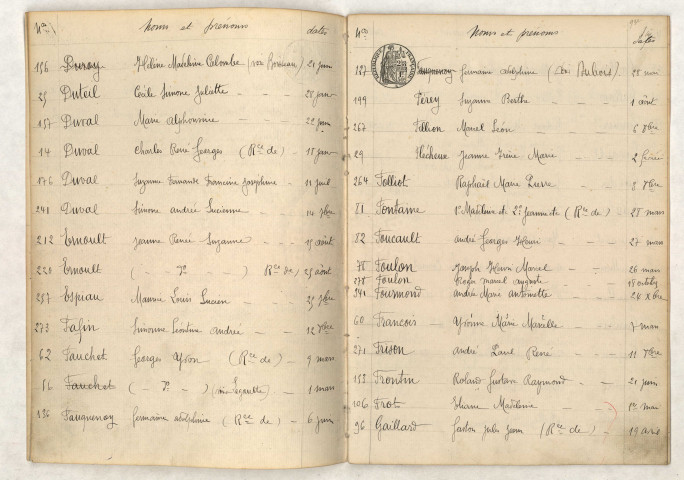 Nos Noms et prénoms dates
156 Duroy Hélène Madeleine Colombe (voir Rousseau) 21 juin
25 Duteil Cécile Simone Juliette — 28 jan
157 Duval Marie Alphonsine — 22 juin
14 Duval Charles René Georges (Rce de) — 18 jan
176 Duval Suzanne Fernande Francine Joséphine — 11 juil
241 Duval Simone Andrée Lucienne — 14 7bre
212 Ernoult Jeanne Renée Suzanne — 15 août
220 Ernoult (— do —) Rce de, 25 août
257 Espiau Maurice Louis Lucien — 25 7bre
273 Fafin Simonne Léontine Andrée — 12 8bre
62 Fauchet Georges Yvon (Rce de) — 9 mars
56 Fauchet (— do —) 1 mars
136 Fauquenoy Germaine Adolphine (Rce de) — 6 juin
Nos Noms et prénoms dates
127 Fauquenoy Germaine Adolphine (voir Dubois). 28 mai
RÉPUBLIQUE FRANÇAISE
199 Férey Suzanne Berthe 1 août
267 Fillion Marcel Léon 6 8bre
29 Flécheux Jeanne Irène Marie 2 février
264 Folliot Raphaël Marie Pierre 3 8bre
81 Fontaine 1o Madeleine et 2o Jeanne etc (Rce de) — 28 mars
82 Foucault André Georges Henri — 27 mars
78 Foulon Joseph Henri Marcel — 26 mars
278 Foulon Roger Marcel Auguste 18 octobre
341 Fourmond Andrée Marie Antoinette 24 Xbre
60 François Yvonne Marie Marcelle 7 mars
271 Frison André Paul René — 11 8bre
153 Frontin Roland Gustave Raymond — 21 juin
106 Frot Éliane Madeleine — 1er mai
96 Gaillard Gaston Jules Jean (Rce de) — 19 avril